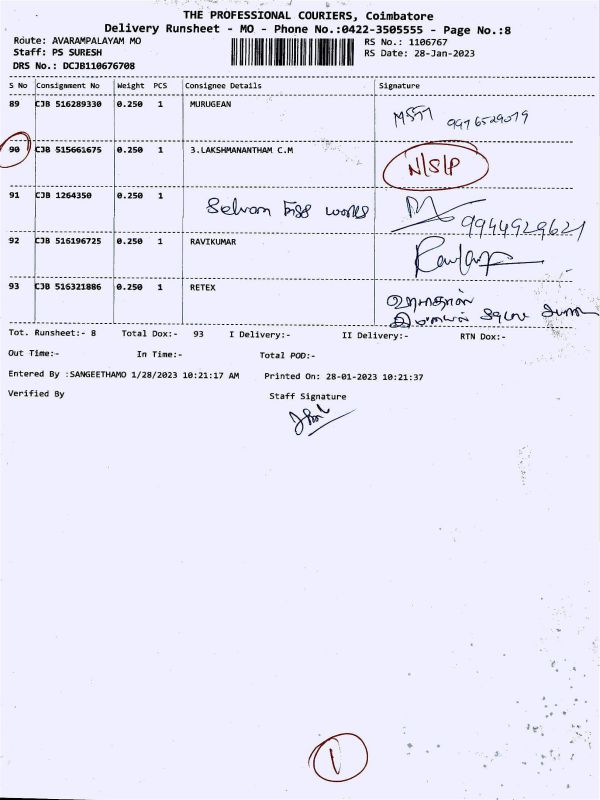 THE PROFESSIONAL COURIERS, Coimbatore
Delivery Runsheet - MO - Phone No.:0422-3505555 - Page No.:8
Route: AVARAMPALAYAM MO RS No.: 1106767
Staff: PS SURESH RS Date: 28-Jan-2023
DRS No.: DCJB110676708
S No Consignment No Weight PCS Consignee Details Signature
89 CJB 516289330 0.250 1 MURUGEAN
9976529079
90 CJB 515661675 0.250 1 3.LAKSHMANANTHAM C.M N/S/P
91 CJB 1264350 0.250 1 Selvam works
9944929621
92 CJB 516196725 0.250 1 RAVIKUMAR
93 CJB 516321886 0.250 1 RETEX
Tot. Runsheet:- 8 Total Dox:- 93 I Delivery:- II Delivery:- RTN Dox:-
Out Time:- In Time:- Total POD:-
Entered By :SANGEETHAMO 1/28/2023 10:21:17 AM Printed On: 28-01-2023 10:21:37
Verified By Staff Signature
1